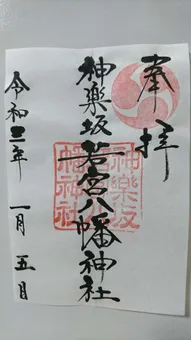 奉拝
神樂坂若宮八幡神社
令和三年 一月 五日
神楽坂
若宮八
幡神社